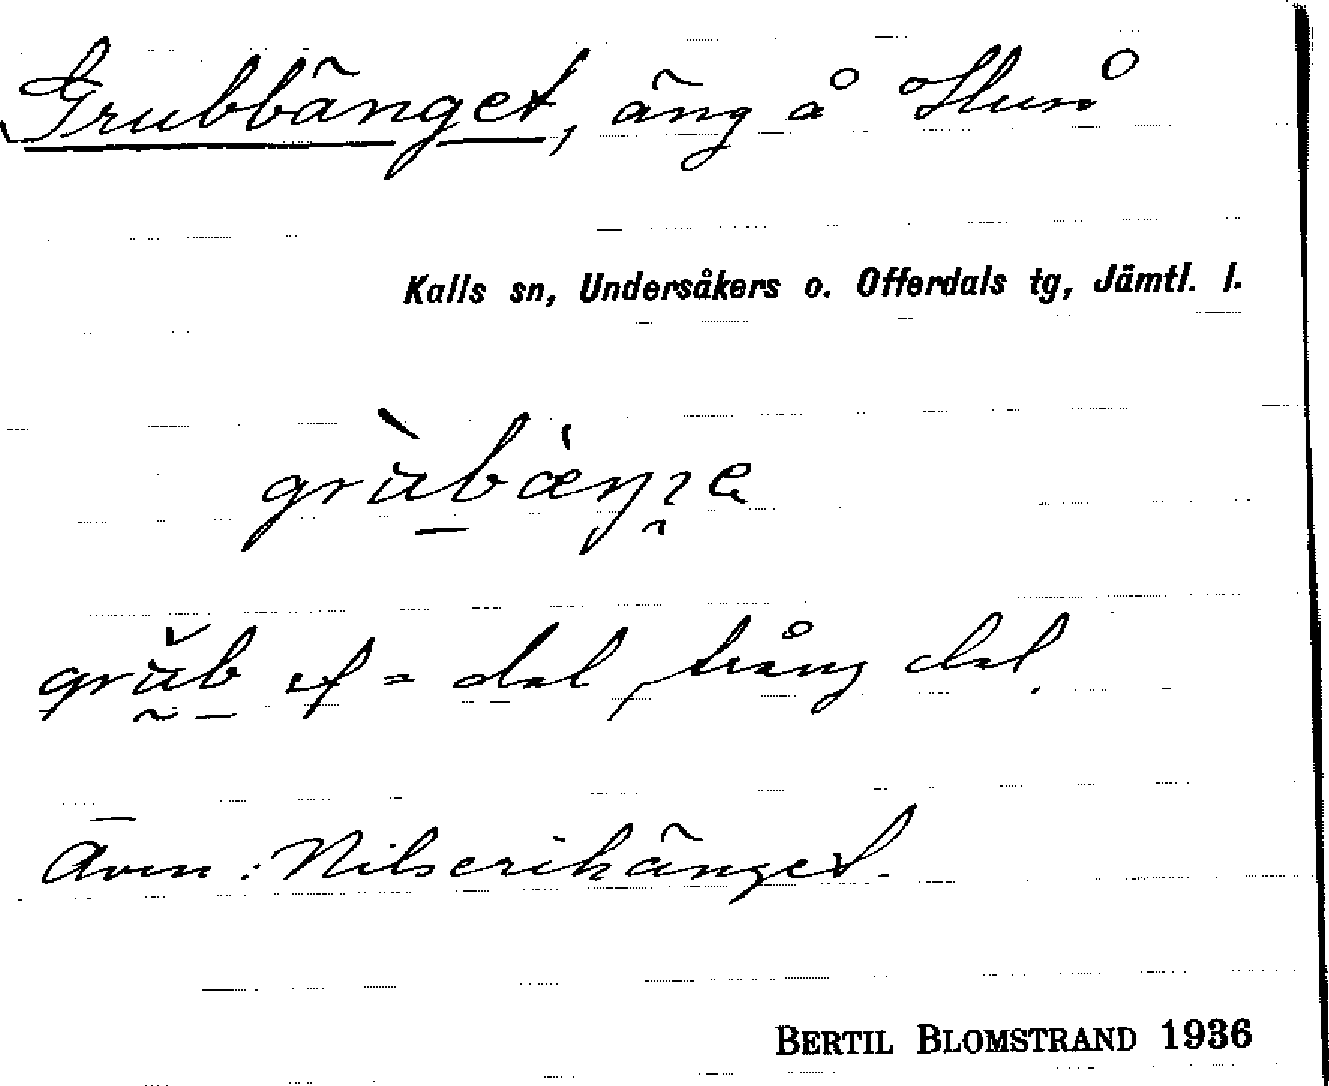 Grubbänget, äng å Huså
Kalls sn, Undersåkers o. Offerdals tg, Jämtl. l.
grùbæŋ₂e
grub f = dal, trång dal.
Även: Nilserikänget.
BERTIL BLOMSTRAND 1936